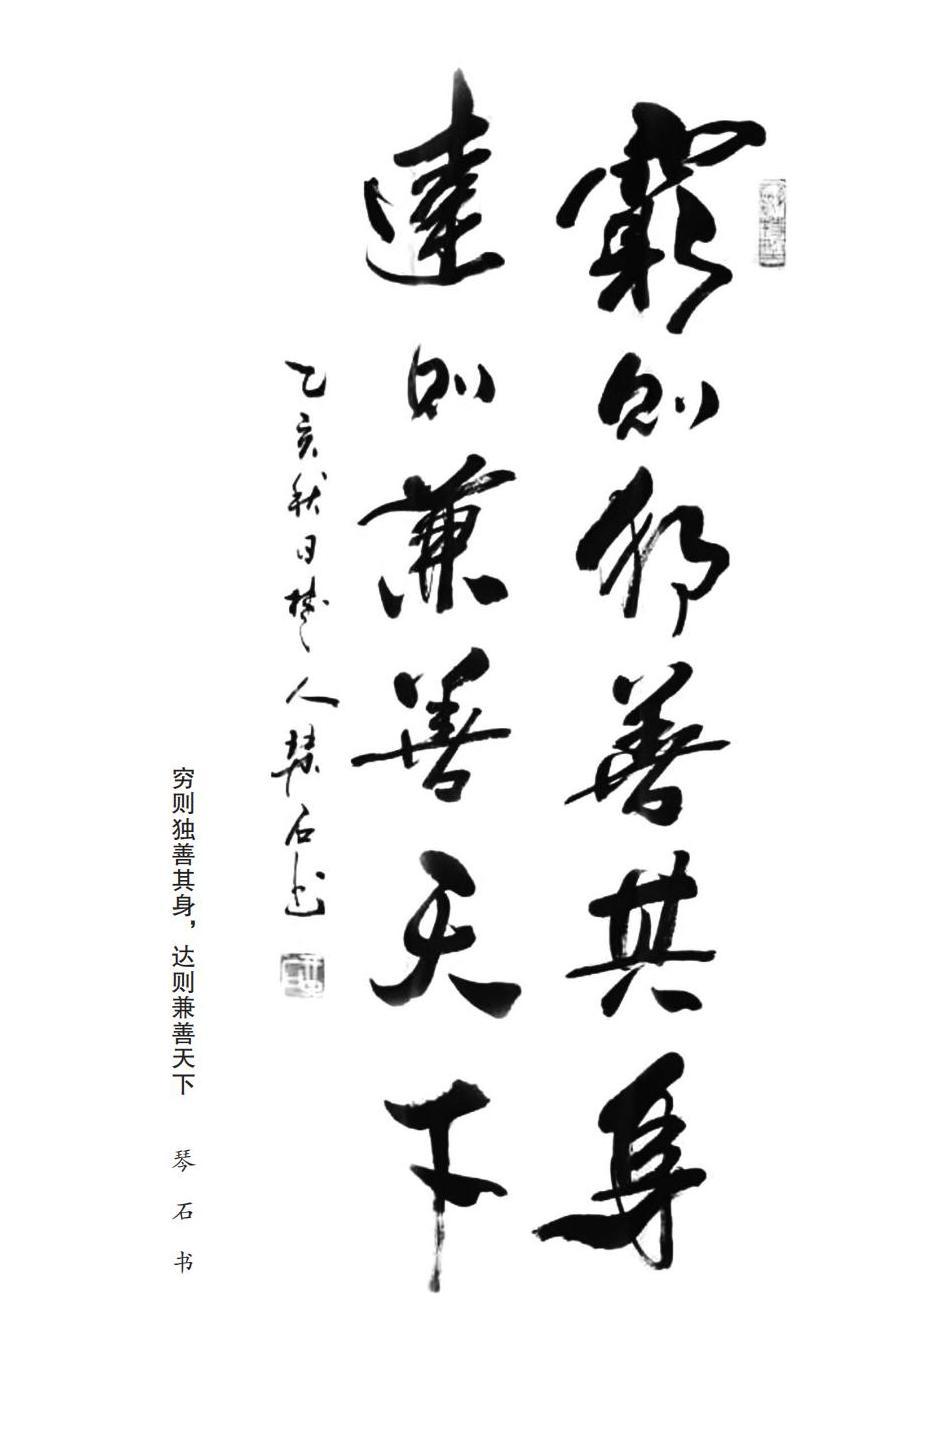 窮則独善其身
達則兼善天下
乙亥秋日楚人琴石书
穷则独善其身，达则兼善天下 琴石书